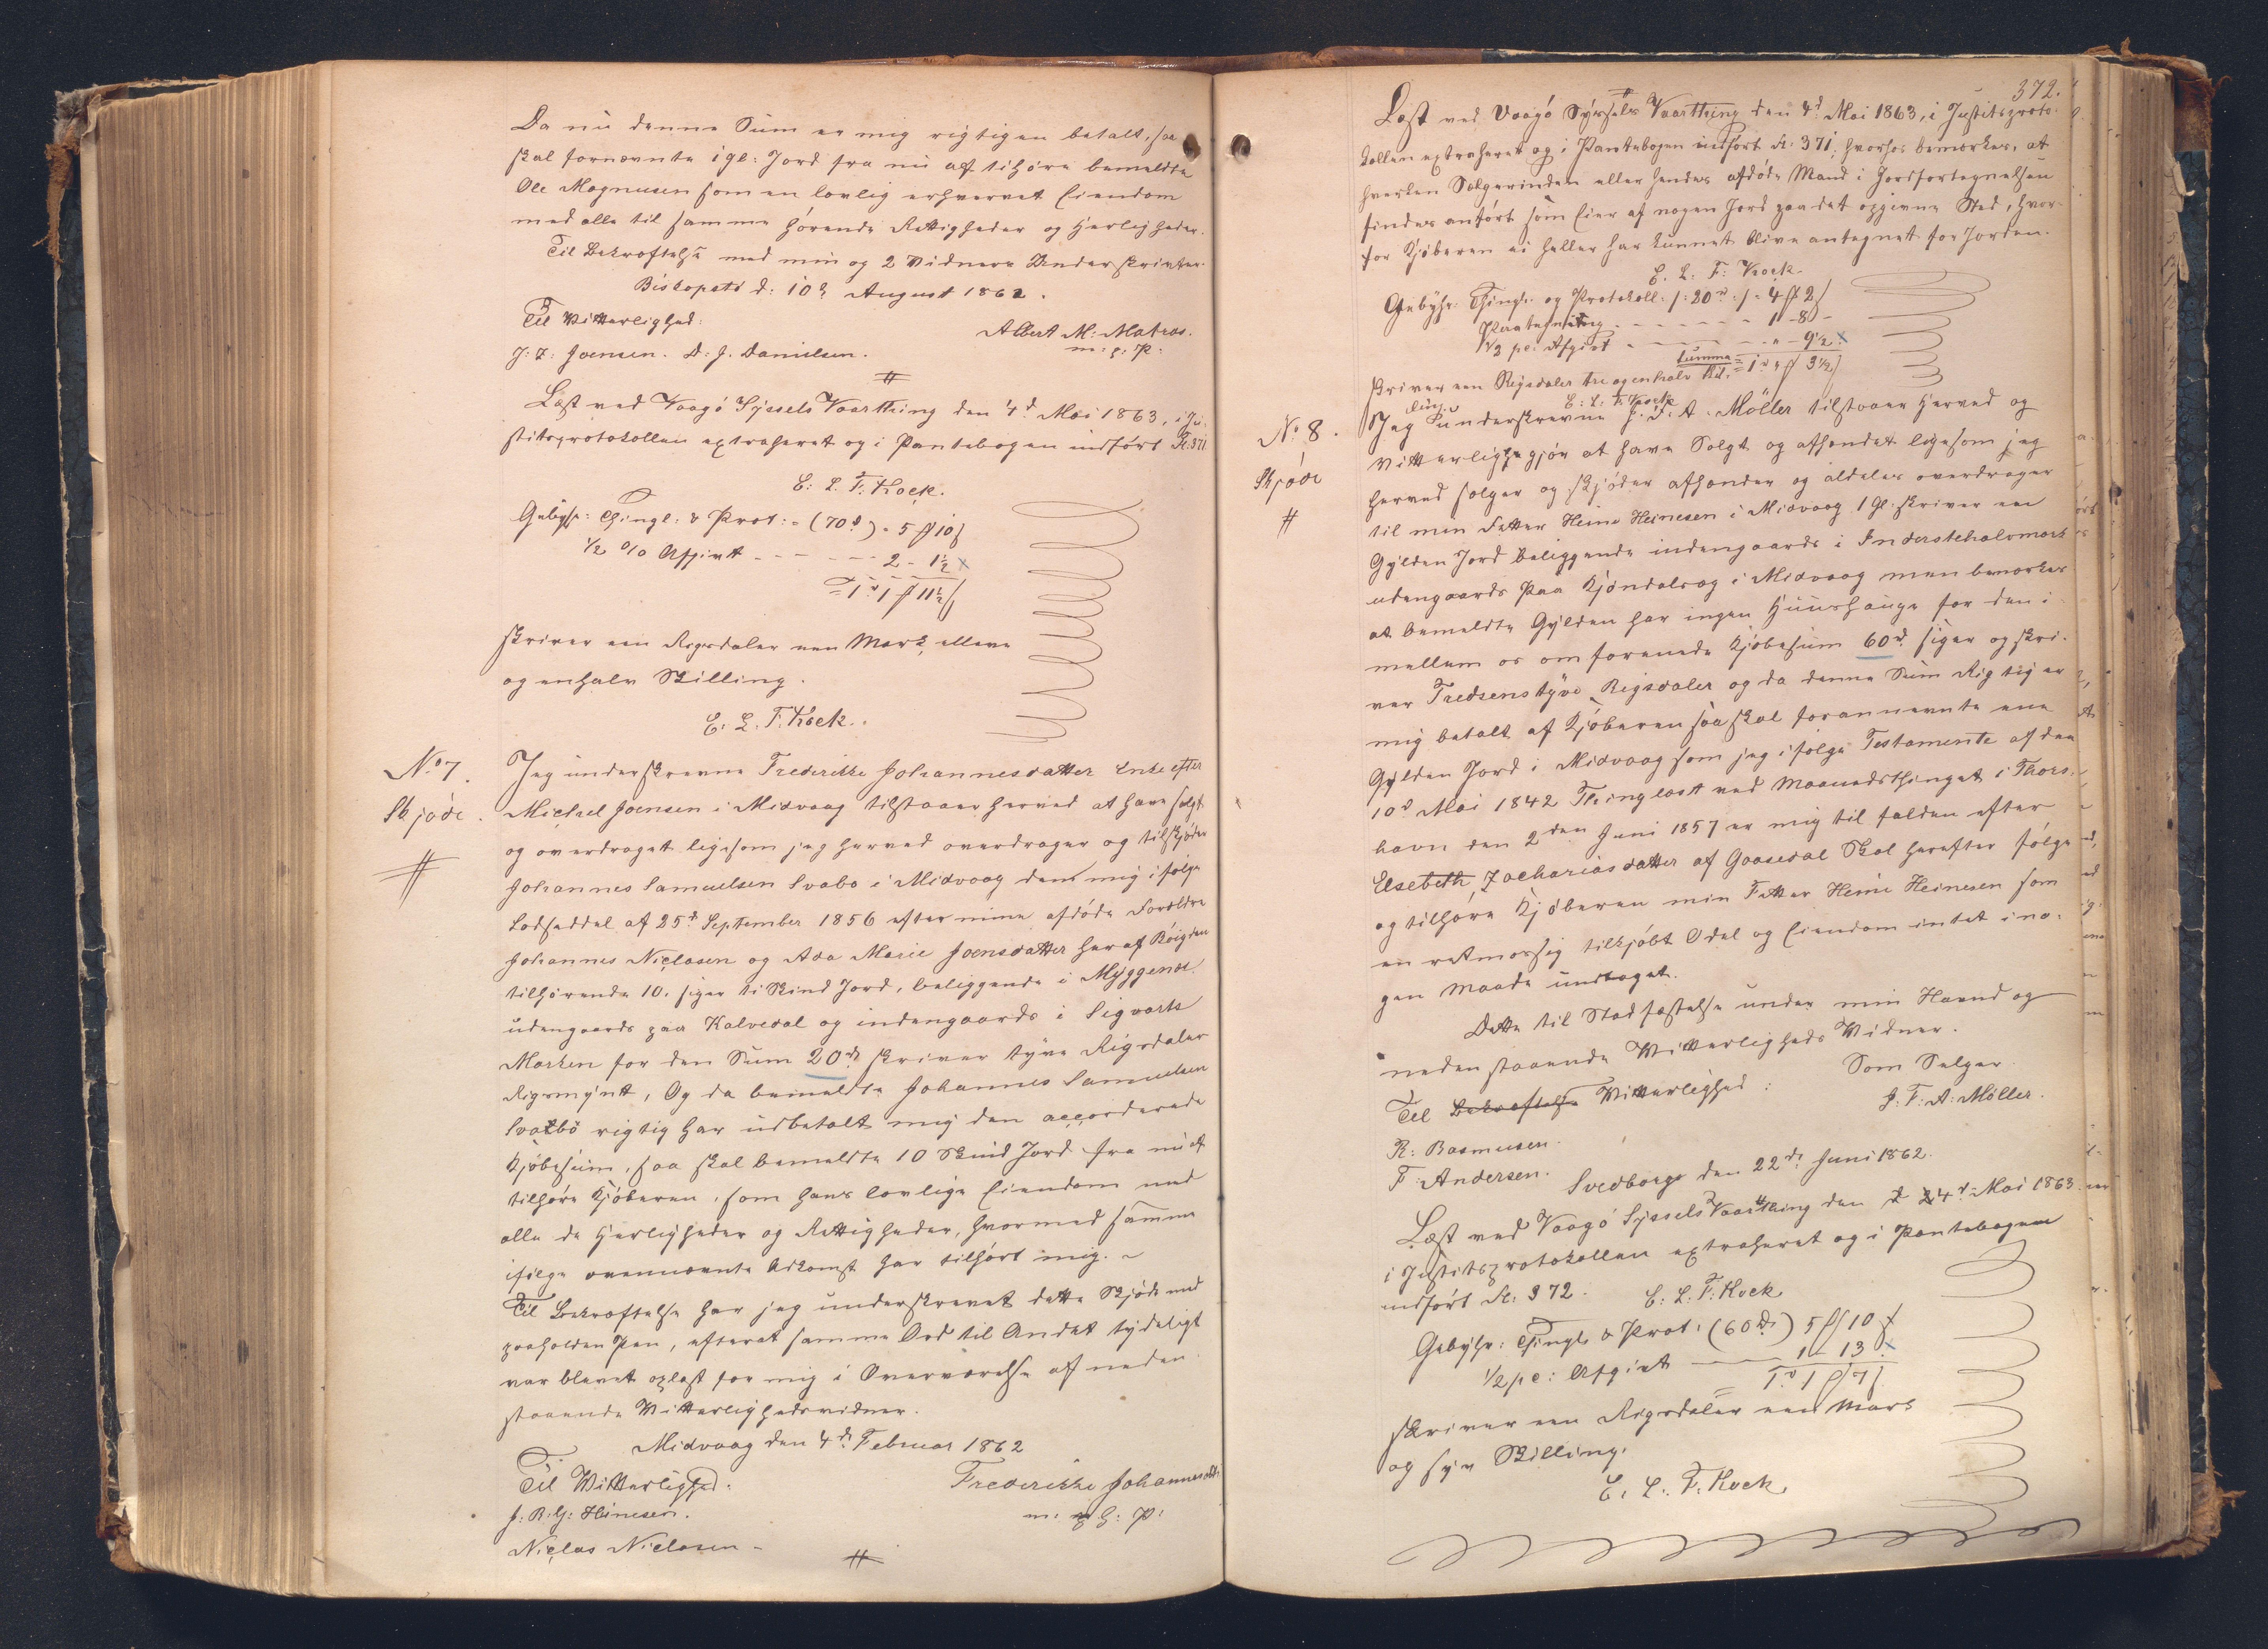 Da nu denne Sum er mig rigtigen betalt, saa
skal fornævnte 1 gl: Jord fra nu af tilhøre bemeldte
Ole Magnusen som en lovlig erhvervet Eiendom
med alle til samme hørende Rettigheder og Herligheder.
Til Bekræftelse med min og 2 Vidners Underskrivter.
Biskopstö d: 10d August 1862.
Til Vitterlighed:
Albert M: Matras.
J: Z: Joensen. D: J. Danielsen.
m: f: P:
Læst ved Vaagö Syssels Vaarthing den 4d Mai 1863, i Ju-
stitsprotokollen extraheret og i Pantebogen indført Fl: 371
E: L: F: Kock.
Gebyhr: Thingl: & Prot: = (70d) = 5 ℳ 10 ß
1/2 % Afgivt - - - - 2 - 1½ x
= 1d 1 ℳ 11½ ß
skriver een Rigsdaler een Mark elleve
og enhalv Skilling.
E: L: F. Kock.
No 7.
Skjøde.
Jeg underskrevne Frederikke Johannesdatter Enke efter
Michael Joensen i Midvaag tilstaaer herved at have solgt
og overdraget ligesom jeg herved overdrager og tilskjøder
Johannes Samuelsen Svabo i Midvaag dem mig ifølge
Lodseddel af 25d September 1856 efter mine afdøde Forældre
Johannes Niclasen og Ada Marie Joensdatter her af Böigden
tilhørende 10. siger ti Skind Jord, beliggende i Myggenæs.
udengaards paa Kalvedal og indengaards i Sigvarts
Marken for den Sum 20d skriver tyve Rigsdaler
Rigsmynt, Og da bemeldte Johannes Samuelsen
Svabö rigtig har udbetalt mig den accorderede
Kjøbesum, saa skal bemeldte 10 Skind Jord fra nu at
tilhøre Kjøberen, som hans lovlige Eiendom med
alle de Herligheder og Rettigheder, hvormed samme
ifølge ovennævnte Adkomst har tilhørt mig.
Til Bekræftelse har jeg underskrevet dette Skjøde med
paaholden Pen, efterat samme Ord til Andet tydeligt
var blevet oplæst for mig i Overværelse af neden
staaende Vitterlighedsvidner.
Midvaag den 4d Februar 1862
Til Vitterlighed.
Frederikke Johannesdtt:
J: R. G: Heinesen.
m: f: P:
Niclas Niclasen
372.
Læst ved Vaagö Syssels Vaarthing den 4d Mai 1863, i Justitsproto-
kollen extraheret og i Pantebogen indført Fl: 371, hvorhos bemærkes, at
hverken Sælgerinden eller hendes afdøde Mand i Jordfortegnelsen
findes anført som Eier af nogen Jord paa det opgivne Sted, hvor-
for Kjøberen ei heller har kunnet blive antegnet for Jorden.
E. L: F: Kock.
Gebyhr: Thingl: og Protokoll: /: 20d :/ = 4 ℳ 2 ß
Paategning - - - - - 1 - 8 -
1/2 pc: Afgivt - - - - " - 9½ x
Summa = 1d " ℳ 3½ ß
skriver een Rigsdaler tre og enhalv Sk.
E: L: F. Kock
No 8.
Skjøde
Jeg underskrevne J. F. A. Möller tilstaaer herved og
vitterlig gjør at have Solgt og afhændet ligesom jeg
herved sælger og skjøder afhænder og aldeles overdrager
til min Fetter Heine Heinesen i Midvaag 1 Gl: skriver een
Gylden Jord beliggende indengaards i Inderstehalvmark
udengaards Paa Kjøndalsog i Midvaag men bemærkes
at bemeldte Gylden har ingen Huushauge for den i-
mellem os om forenede Kjøbesum 60d siger og skri-
ver Tredsenstyve Rigsdaler og da denne Sum Rigtig er
mig betalt af Kjøberen saa skal forannævnte ene
Gylden Jord i Midvaag som jeg ifølge Testamente af den
10d Mai 1842 Thinglæst ved Maanedsthinget i Thors-
havn den 2den Juni 1857 er mig til falden efter
Elsebeth Zachariasdatter af Gaasedal Skal herefter følge
og tilhøre Kjøberen min Fetter Heine Heinesen som
en retmæssig tilkjøbt Odel og Eiendom intet i no-
gen Maade undtaget.
Dette til Stadfæstelse under min Haand og
nedenstaaende Vitterligheds Vidner.
Som Sælger
Til Bekræftelse Vitterlighed:
J: F: A: Möller.
R: Rasmusen.
F. Andersen.
Svedborge den 22d Juni 1862.
Læst ved Vaagö Syssels Vaarthing den 4d Mai 1863
i Justitsprotokollen extraheret og i Pantebogen
indført Fl: 372. E: L: F: Kock
Gebyhr: Thingl: & Prot: (60d) 5 ℳ 10 ß
1/2 pc: Afgivt 1 - 13 x
= 1d 1 ℳ 7 ß
skriver een Rigsdaler een Mark
og syv Skilling.
E. L. F. Kock